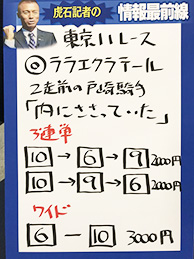 虎石記者の
情報最前線
東京11レース
◎ララエクラテール
2走前の戸崎騎手
「内にささっていた」
3連単
10→6→9 2000円
10→9→6 2000円
ワイド
6－10 3000円